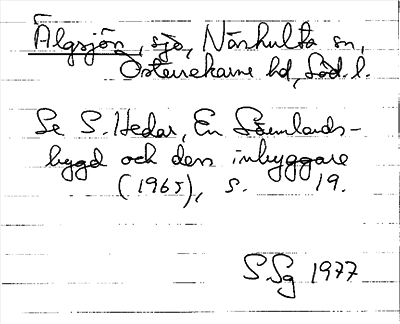 Älgsjön, sjö, Närhulta sn,
Österrekarne hd, Söd. l.
Se S. Hedar, En Sörmlands-
bygd och dess inbyggare
(1965), s. 19.
SSg 1977